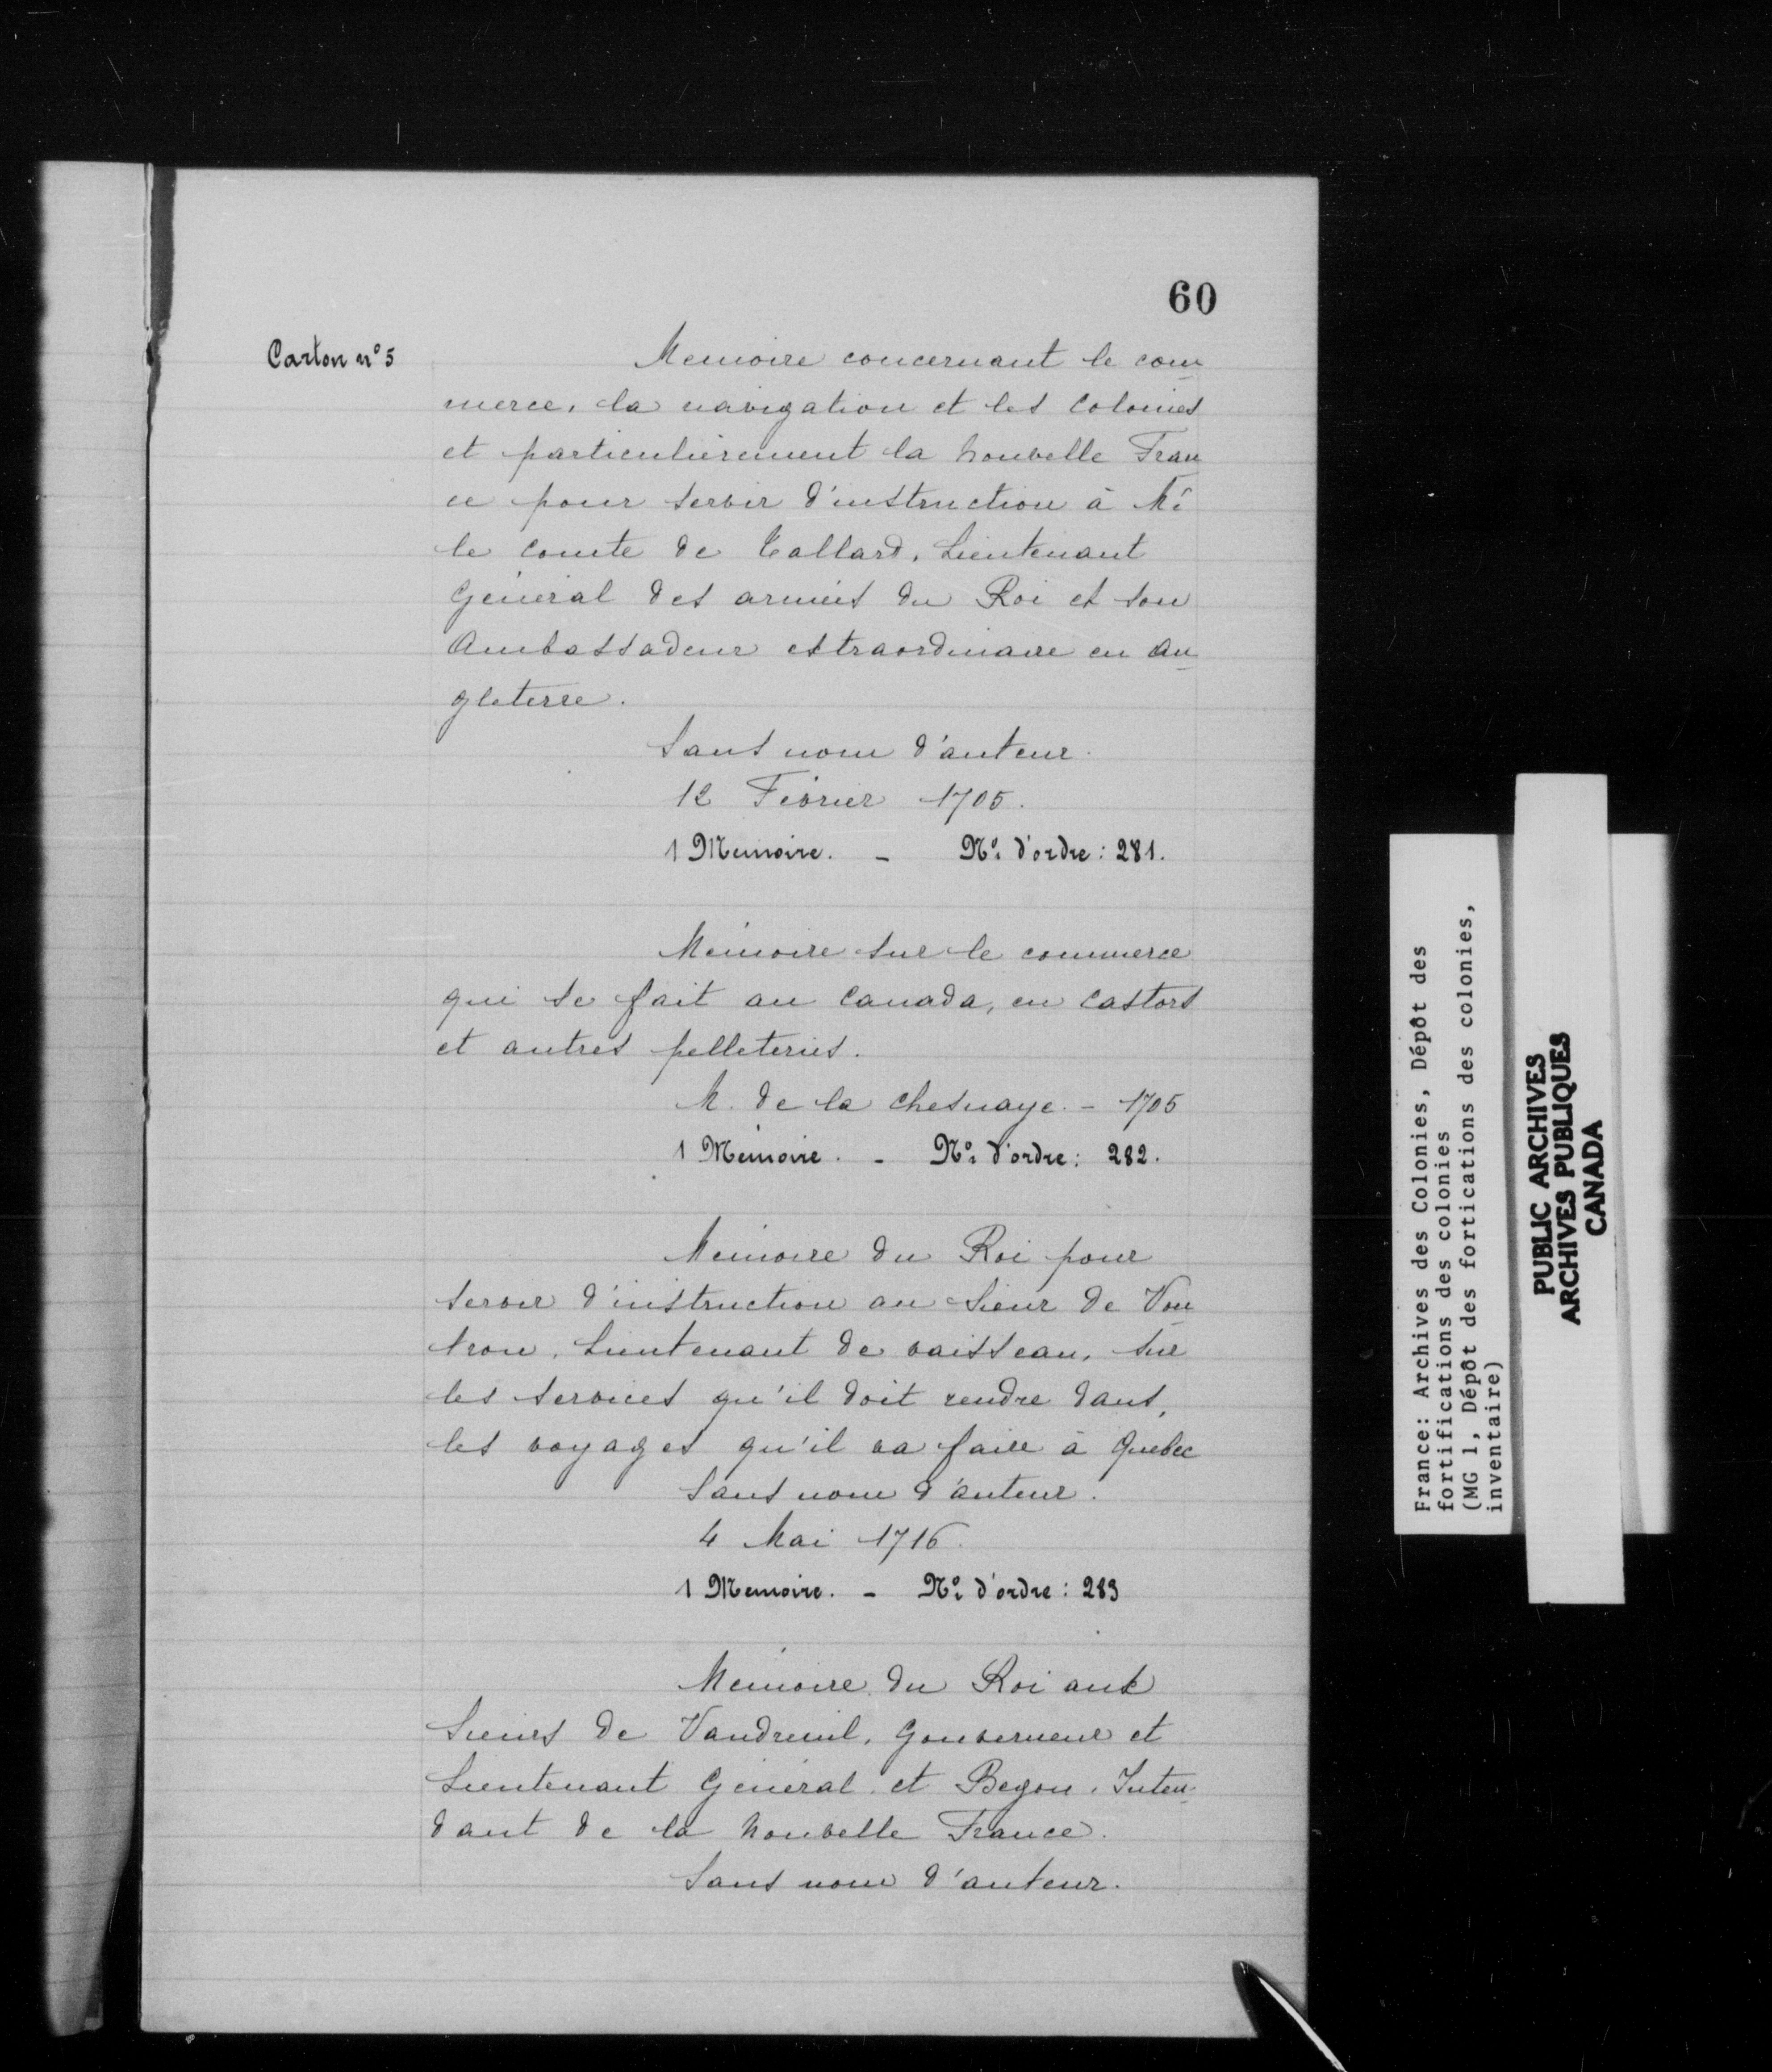 60
Carton n° 5
Memoire concernant le com
merce, la navigation et les Colonies
et particulièrement la Nouvelle Fran
ce pour servir d'instruction à Mr
le Comte de Tallard, Lieutenant
Général des armées du Roi et son
Ambassadeur extraordinaire en An
gleterre.
Sans nom d'auteur.
12 Février 1705.
1 Memoire. - No: d'ordre : 281.
Mémoire sur le commerce
qui se fait au Canada, en Castors
et autres pelleteries.
M. de la Chesnaye. - 1705
1 Mémoire. - No: d'ordre : 282.
Memoire du Roi pour
servir d'instruction au Sieur de Vou
tron, Lieutenant de vaisseau, sur
les services qu'il doit rendre dans,
les voyages qu'il va faire à Quebec
Sans nom d'auteur.
4 Mai 1716.
1 Memoire. - No: d'ordre : 283
Mémoire du Roi aux
Sieurs de Vaudreuil, Gouverneur et
Lieutenant Général, et Begon, Inten-
dant de la Nouvelle France.
Sans nom d'auteur.
France: Archives des Colonies, Dépôt des
fortifications des colonies
(MG 1, Dépôt des fortications des colonies,
inventaire)
PUBLIC ARCHIVES
ARCHIVES PUBLIQUES
CANADA